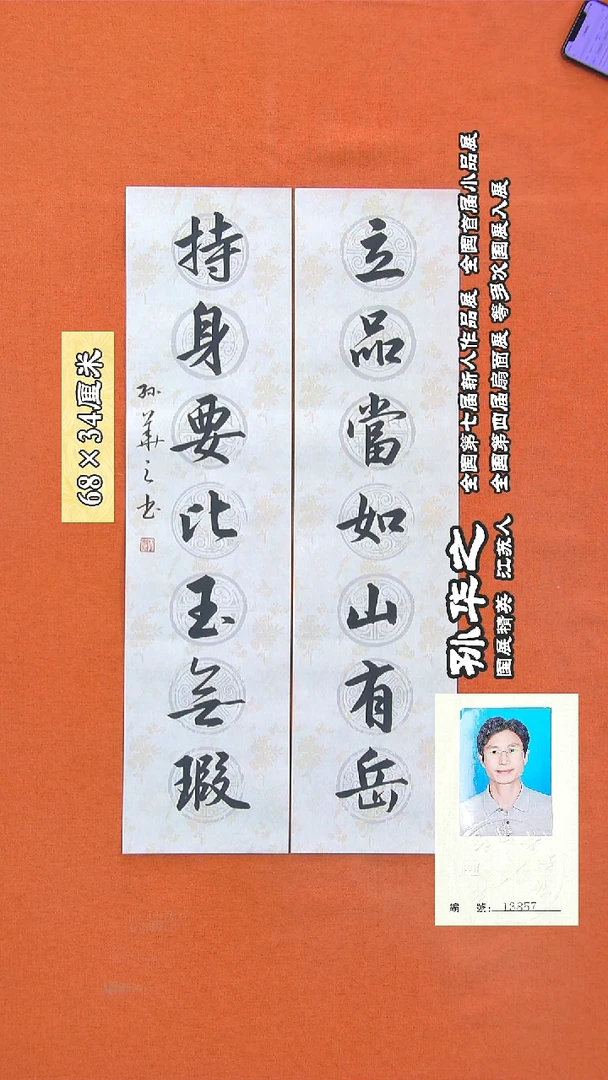 立品當如山有岳
持身要比玉無瑕
孙華之书
68×34厘米
全国第七届新人作品展 全国首届小品展
全国第四届扇面展 等多次国展入展
孙华之
国展精英 江苏人
編 號: 13857